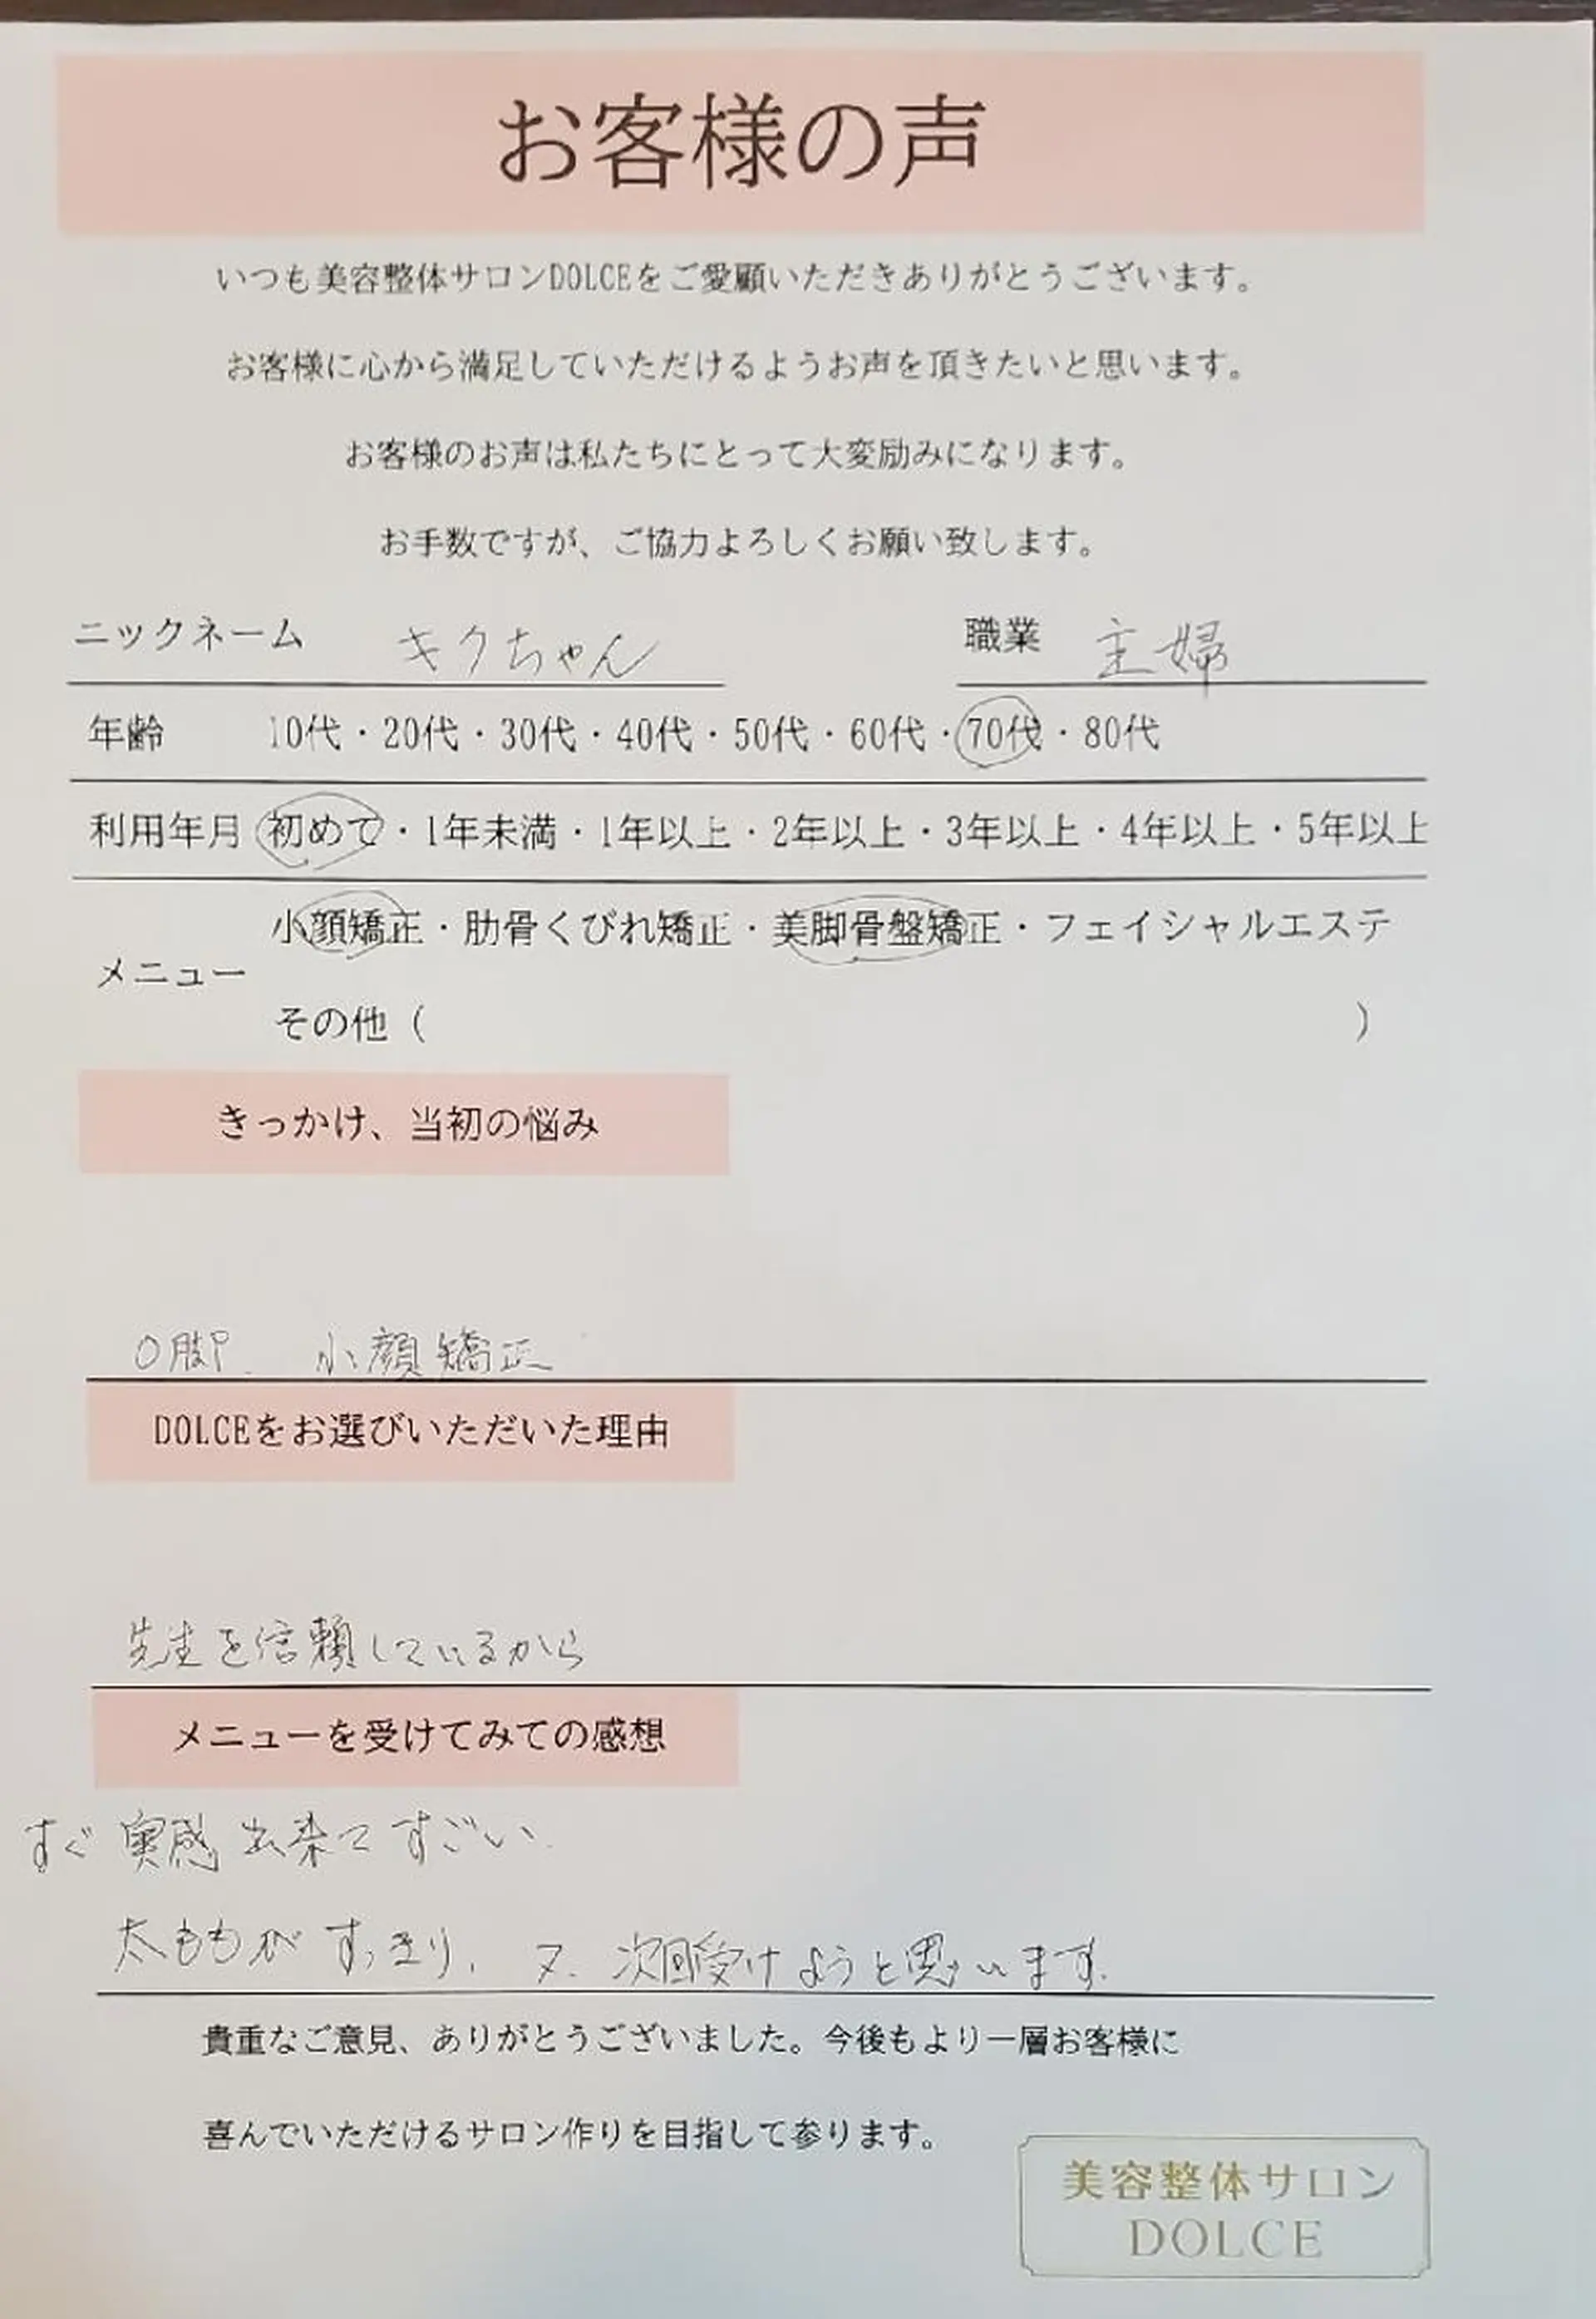 お客様の声
いつも美容整体サロンDOLCEをご愛顧いただきありがとうございます。
お客様に心から満足していただけるようお声を頂きたいと思います。
お客様のお声は私たちにとって大変励みになります。
お手数ですが、ご協力よろしくお願い致します。
ニックネーム キクちゃん 職業 主婦
年齢 10代・20代・30代・40代・50代・60代・70代・80代
利用年月 初めて・1年未満・1年以上・2年以上・3年以上・4年以上・5年以上
小顔矯正・肋骨くびれ矯正・美脚骨盤矯正・フェイシャルエステ
メニュー
その他（ ）
きっかけ、当初の悩み
O脚. 小顔矯正
DOLCEをお選びいただいた理由
先生を信頼しているから
メニューを受けてみての感想
すぐ実感出来てすごい.
太ももがすっきり、又、次回受けようと思います.
貴重なご意見、ありがとうございました。今後もより一層お客様に
喜んでいただけるサロン作りを目指して参ります。
美容整体サロン
DOLCE